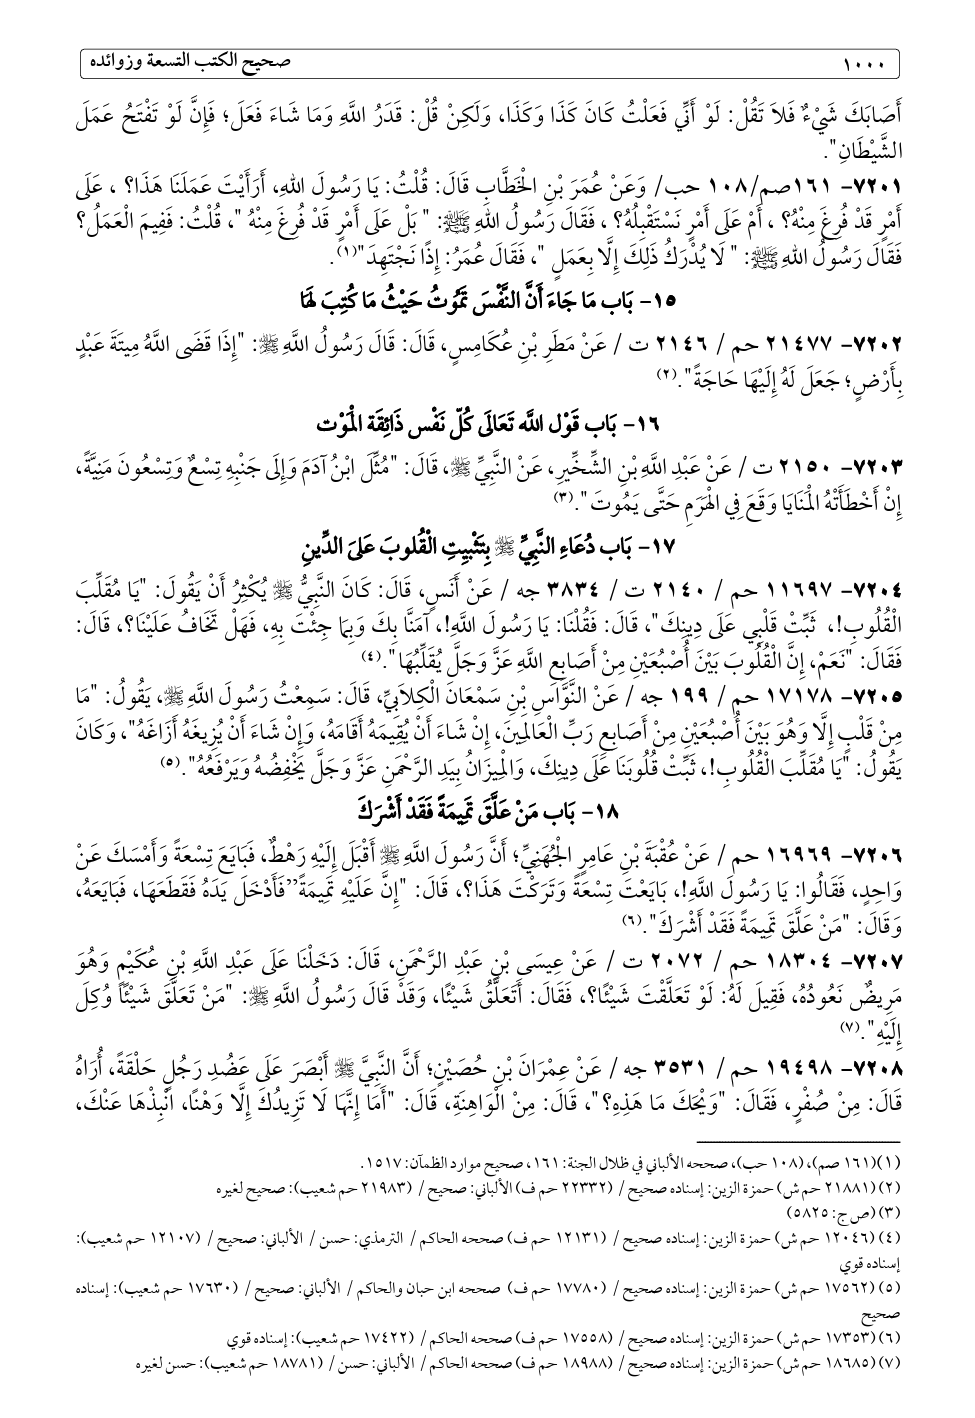 ١٠٠٠ صحيح الكتب التسعة وزوائده
أَصَابَكَ شَيْءٌ فَلاَ تَقُلْ: لَوْ أَنِّي فَعَلْتُ كَانَ كَذَا وَكَذَا، وَلَكِنْ قُلْ: قَدَرُ اللَّهِ وَمَا شَاءَ فَعَلَ؛ فَإِنَّ لَوْ تَفْتَحُ عَمَلَ
الشَّيْطَانِ".
٧٢٠١- ١٦١صم/ ١٠٨ حب/ وَعَنْ عُمَرَ بْنِ الْخَطَّابِ قَالَ: قُلْتُ: يَا رَسُولَ اللهِ، أَرَأَيْتَ عَمَلَنَا هَذَا؟ ، عَلَى
أَمْرٍ قَدْ فُرِغَ مِنْهُ؟ ، أَمْ عَلَى أَمْرٍ نَسْتَقْبِلُهُ؟ ، فَقَالَ رَسُولُ اللهِ ﷺ: " بَلْ عَلَى أَمْرٍ قَدْ فُرِغَ مِنْهُ "، قُلْتُ: فَفِيمَ الْعَمَلُ؟
فَقَالَ رَسُولُ اللهِ ﷺ: " لَا يُدْرَكُ ذَلِكَ إِلَّا بِعَمَلٍ "، فَقَالَ عُمَرُ: إِذًا نَجْتَهِدَ"(١).
١٥- بَاب مَا جَاءَ أَنَّ النَّفْسَ تَمُوتُ حَيْثُ مَا كُتِبَ لَهَا
٧٢٠٢- ٢١٤٧٧ حم / ٢١٤٦ ت / عَنْ مَطَرِ بْنِ عُكَامِسٍ، قَالَ: قَالَ رَسُولُ اللَّهِ ﷺ: "إِذَا قَضَى اللَّهُ مِيتَةَ عَبْدٍ
بِأَرْضٍ؛ جَعَلَ لَهُ إِلَيْهَا حَاجَةً".(٢)
١٦- بَاب قَوْل اللَّه تَعَالَى كُلّ نَفْس ذَائِقَة الْمَوْت
٧٢٠٣- ٢١٥٠ ت / عَنْ عَبْدِ اللَّهِ بْنِ الشِّخِّيرِ، عَنْ النَّبِيِّ ﷺ، قَالَ: "مُثِّلَ ابْنُ آدَمَ وَإِلَى جَنْبِهِ تِسْعٌ وَتِسْعُونَ مَنِيَّةً،
إِنْ أَخْطَأَتْهُ الْمَنَايَا وَقَعَ فِي الْهَرَمِ حَتَّى يَمُوتَ ".(٣)
١٧- بَاب دُعَاءِ النَّبِيِّ ﷺ بِتَثْبِيتِ الْقُلُوبَ عَلىَ الدِّينِ
٧٢٠٤- ١١٦٩٧ حم / ٢١٤٠ ت / ٣٨٣٤ جه / عَنْ أَنَسٍ، قَالَ: كَانَ النَّبِيُّ ﷺ يُكْثِرُ أَنْ يَقُولَ: "يَا مُقَلِّبَ
الْقُلُوبِ!، ثَبِّتْ قَلْبِي عَلَى دِينِكَ"، قَالَ: فَقُلْنَا: يَا رَسُولَ اللَّهِ!، آمَنَّا بِكَ وَبِمَا جِئْتَ بِهِ، فَهَلْ تَخَافُ عَلَيْنَا؟، قَالَ:
فَقَالَ: "نَعَمْ، إِنَّ الْقُلُوبَ بَيْنَ أُصْبُعَيْنِ مِنْ أَصَابِعِ اللَّهِ عَزَّ وَجَلَّ يُقَلِّبُهَا".(٤)
٧٢٠٥- ١٧١٧٨ حم / ١٩٩ جه / عَنْ النَّوَّاسِ بْنِ سَمْعَانَ الْكِلَابِيِّ، قَالَ: سَمِعْتُ رَسُولَ اللَّهِ ﷺ، يَقُولُ: "مَا
مِنْ قَلْبٍ إِلَّا وَهُوَ بَيْنَ أُصْبُعَيْنِ مِنْ أَصَابِعِ رَبِّ الْعَالَمِينَ، إِنْ شَاءَ أَنْ يُقِيمَهُ أَقَامَهُ، وَإِنْ شَاءَ أَنْ يُزِيغَهُ أَزَاغَهُ"، وَكَانَ
يَقُولُ: "يَا مُقَلِّبَ الْقُلُوبِ!، ثَبِّتْ قُلُوبَنَا عَلَى دِينِكَ، وَالْمِيزَانُ بِيَدِ الرَّحْمَنِ عَزَّ وَجَلَّ يَخْفِضُهُ وَيَرْفَعُهُ".(٥)
١٨- بَاب مَنْ عَلَّقَ تَمِيمَةً فَقَدْ أَشْرَكَ
٧٢٠٦- ١٦٩٦٩ حم / عَنْ عُقْبَةَ بْنِ عَامِرٍ الْجُهَنِيِّ؛ أَنَّ رَسُولَ اللَّهِ ﷺ أَقْبَلَ إِلَيْهِ رَهْطٌ، فَبَايَعَ تِسْعَةً وَأَمْسَكَ عَنْ
وَاحِدٍ، فَقَالُوا: يَا رَسُولَ اللَّهِ!، بَايَعْتَ تِسْعَةً وَتَرَكْتَ هَذَا؟، قَالَ: "إِنَّ عَلَيْهِ تَمِيمَةً’’فَأَدْخَلَ يَدَهُ فَقَطَعَهَا، فَبَايَعَهُ،
وَقَالَ: "مَنْ عَلَّقَ تَمِيمَةً فَقَدْ أَشْرَكَ".(٦)
٧٢٠٧- ١٨٣٠٤ حم / ٢٠٧٢ ت / عَنْ عِيسَى بْنِ عَبْدِ الرَّحْمَنِ، قَالَ: دَخَلْنَا عَلَى عَبْدِ اللَّهِ بْنِ عُكَيْمٍ وَهُوَ
مَرِيضٌ نَعُودُهُ، فَقِيلَ لَهُ: لَوْ تَعَلَّقْتَ شَيْئًا؟، فَقَالَ: أَتَعَلَّقُ شَيْئًا، وَقَدْ قَالَ رَسُولُ اللَّهِ ﷺ: "مَنْ تَعَلَّقَ شَيْئًا وُكِلَ
إِلَيْهِ".(٧)
٧٢٠٨- ١٩٤٩٨ حم / ٣٥٣١ جه / عَنْ عِمْرَانَ بْنِ حُصَيْنٍ؛ أَنَّ النَّبِيَّ ﷺ أَبْصَرَ عَلَى عَضُدِ رَجُلٍ حَلْقَةً، أُرَاهُ
قَالَ: مِنْ صُفْرٍ، فَقَالَ: "وَيْحَكَ مَا هَذِهِ؟"، قَالَ: مِنْ الْوَاهِنَةِ، قَالَ: "أَمَا إِنَّهَا لَا تَزِيدُكَ إِلَّا وَهْنًا، انْبِذْهَا عَنْكَ،
(١)(١٦١ صم)، (١٠٨ حب)، صححه الألباني في ظلال الجنة: ١٦١، صحيح موارد الظمآن: ١٥١٧.
(٢)(٢١٨٨١ حم ش) حمزة الزين: إسناده صحيح / (٢٢٣٣٢ حم ف) الألباني: صحيح / (٢١٩٨٣ حم شعيب): صحيح لغيره
(٣)(ص ج: ٥٨٢٥)
(٤)(١٢٠٤٦ حم ش) حمزة الزين: إسناده صحيح / (١٢١٣١ حم ف) صححه الحاكم / الترمذي: حسن / الألباني: صحيح / (١٢١٠٧ حم شعيب):
إسناده قوي
(٥)(١٧٥٦٢ حم ش) حمزة الزين: إسناده صحيح / (١٧٧٨٠ حم ف) صححه ابن حبان والحاكم / الألباني: صحيح / (١٧٦٣٠ حم شعيب): إسناده
صحيح
(٦)(١٧٣٥٣ حم ش) حمزة الزين: إسناده صحيح / (١٧٥٥٨ حم ف) صححه الحاكم / (١٧٤٢٢ حم شعيب): إسناده قوي
(٧)(١٨٦٨٥ حم ش) حمزة الزين: إسناده صحيح / (١٨٩٨٨ حم ف) صححه الحاكم / الألباني: حسن / (١٨٧٨١ حم شعيب): حسن لغيره